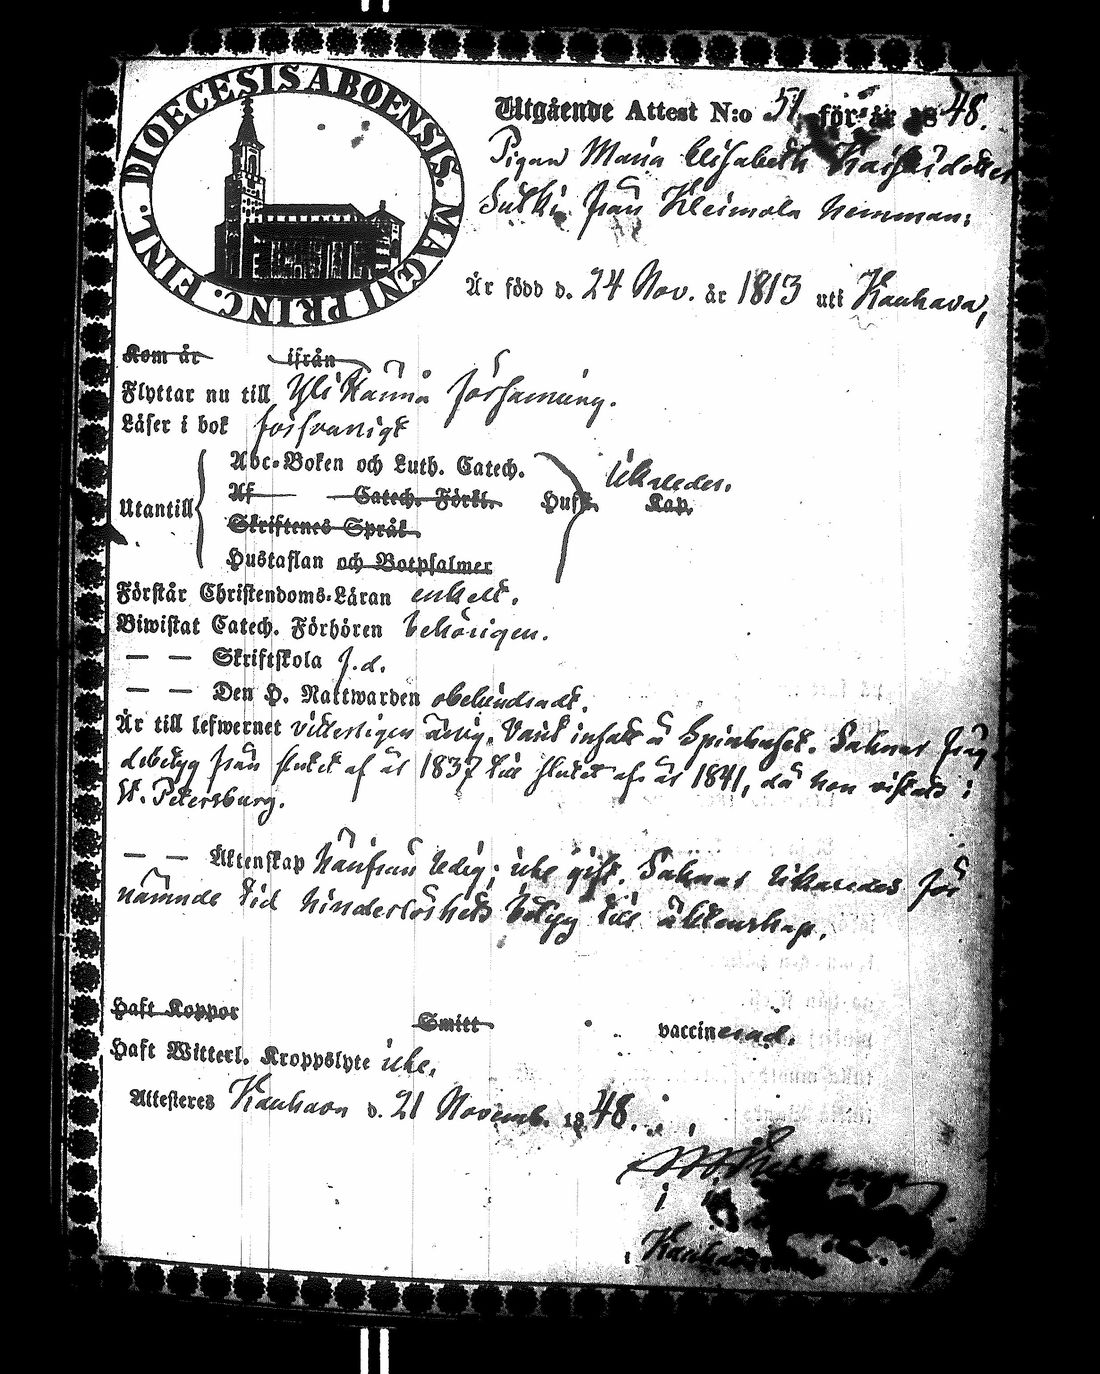 DIOECESIS ABOENSIS. MAGNI PRINC. FINL.
Utgående Attest N:o 51 för år 1848.
Pigan Maria Elisabeth
från Heimola hemman.
Är född d. 24 Nov. år 1813 uti Kauhava,
Kom år ifrån
Flyttar nu till Ylihärmä församling.
Läser i bok försvarligt
Abc-Boken och Luth. Catech.
Af Catech. Förkl. Husf. Kap.
Utantill
Skriftenes Språk
Hustaflan och Botpsalmer
likaledes.
Förstår Christendoms-Läran enkelt.
Biwistat Catech. Förhören behörigen.
— — Skriftskola f.d.
— — Den H. Nattwarden obehindradt.
Är till lefwernet vitterligen ärlig. Varit insatt å Spinhuset. Saknar frejd
debetyg från slutet af år 1837 till slutet af år 1841, då hon vistats i
St. Petersburg.
— — Äktenskap härifrån ledig; icke gift. Saknar likaledes för
nämnde tid hinderslöshets betyg till äktenskap.
Haft Koppor Smitt vaccinerad.
Haft Witterl. Kroppslyte icke.
Attesteres Kauhava d. 21 Novemb. 1848.